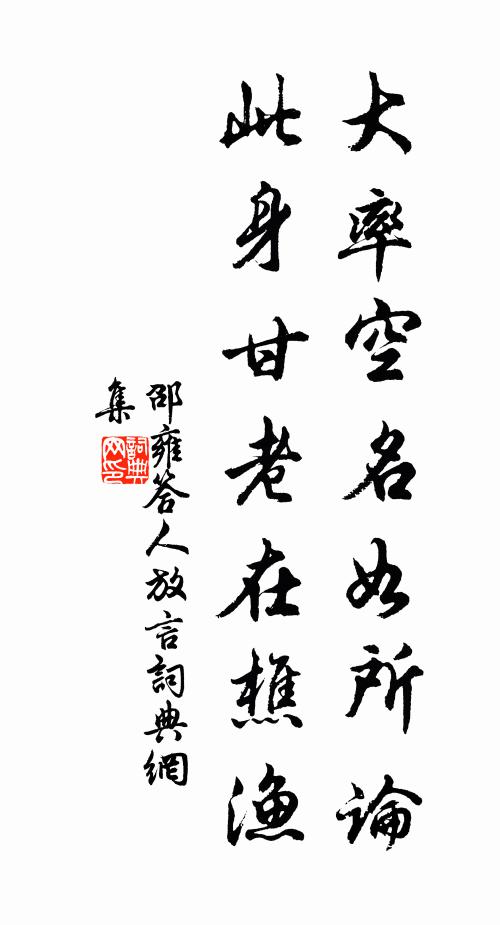 大率空名如所論
此身甘老在樵漁
邵雍答人放言詞典網
集
詞典
网印